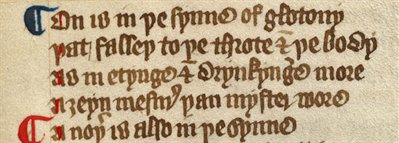 On is in þe synne of glotony
þat falleþ to þe throte & þe body
As in etynge & drynkynge more
Aȝeyn mesur þan myster wore
An noþer is also in þe synne